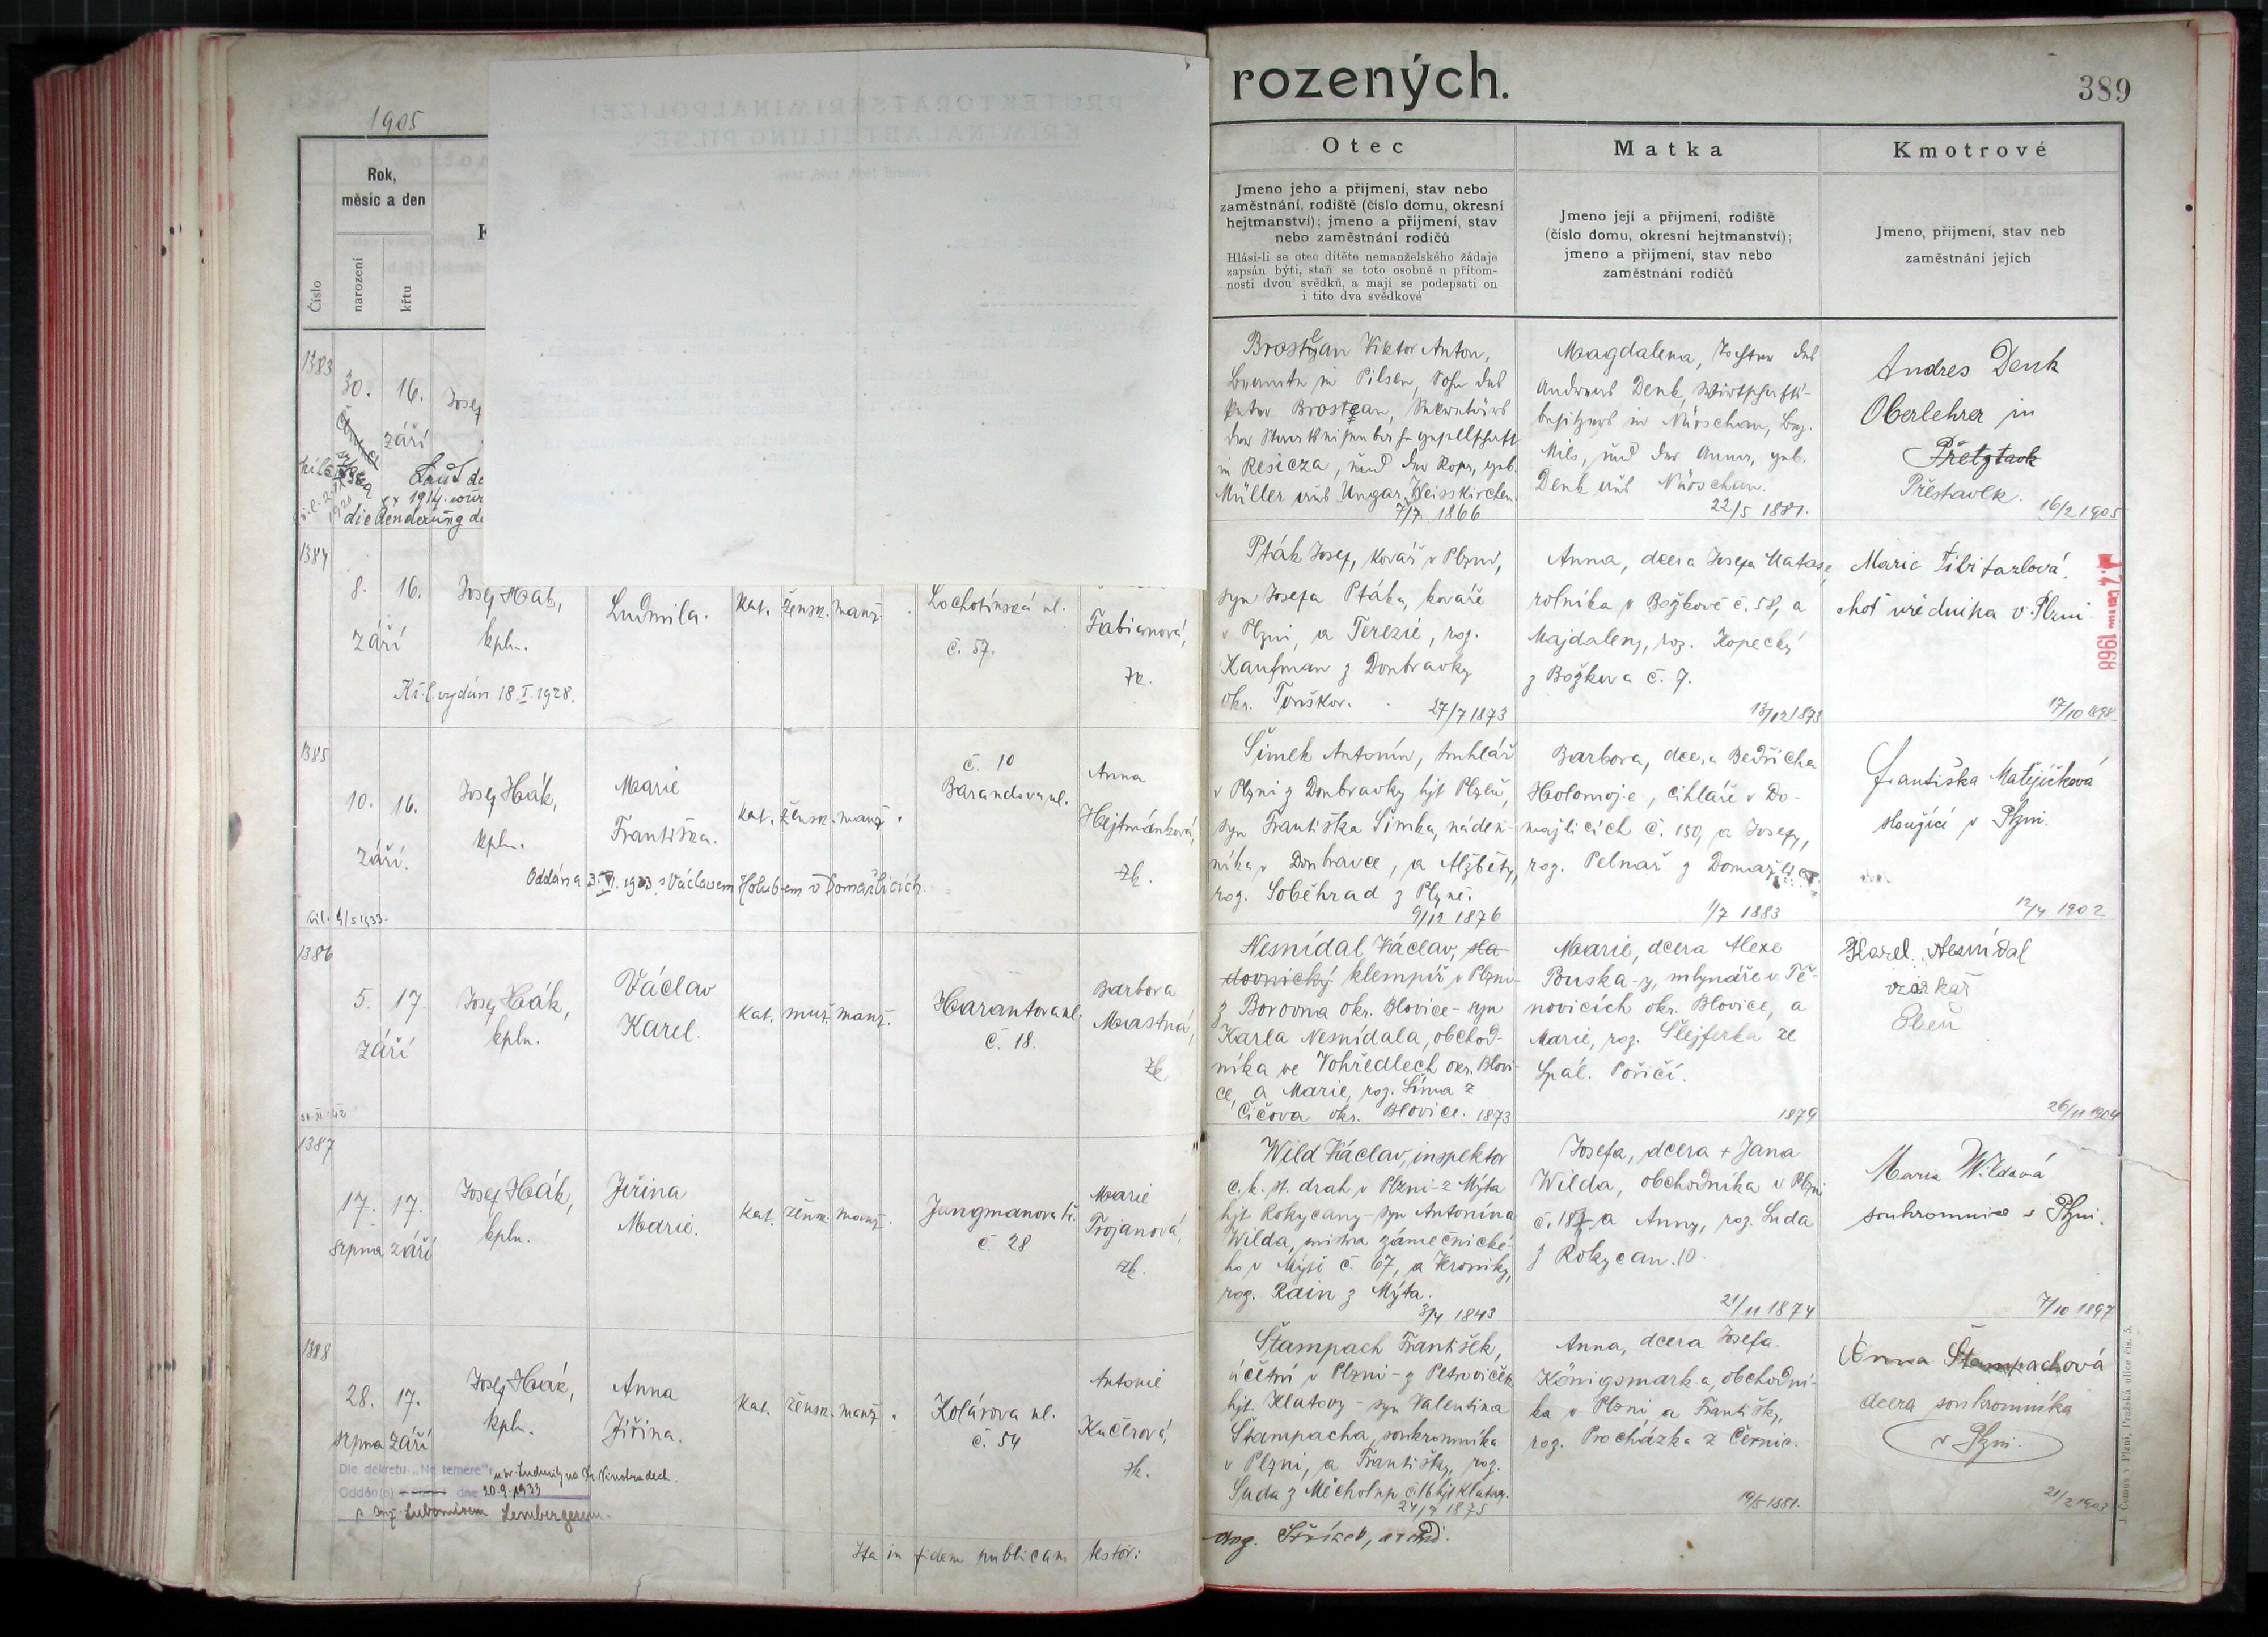 1905
rozených.
389
Číslo
Rok,
měsíc a den
narození
křtu
Otec
Jmeno jeho a přijmení, stav nebo
zaměstnání, rodiště (číslo domu, okresní
hejtmanství); jmeno a přijmení, stav
nebo zaměstnání rodičů
Hlásí-li se otec dítěte nemanželského žádaje
zapsán býti, staň se toto osobně u přítom-
nosti dvou svědků, a mají se podepsati on
i tito dva svědkové
Matka
Jmeno její a přijmení, rodiště
(číslo domu, okresní hejtmanství);
jmeno a přijmení, stav nebo
zaměstnání rodičů
Kmotrové
Jmeno, přijmení, stav neb
zaměstnání jejich
1383
30. 16.
září
Josef
Laut de
ex 1914. wur
die Aenderung de
Brostean Viktor Anton,
Beamte in Pilsen, Sohn des
Peter Brostean, Sekretärs
der Staatseisenbahngesellschaft
in Resicza, und der Rosa, geb.
Müller aus Ungar. Weisskirchen.
7/7 1866
Magdalena, Tochter des
Andreas Denk, Wirtschafts-
besitzers in Nürschan, Bez.
Mies, und der Anna, geb.
Denk aus Nürschan.
22/5 1881.
Andres Denk
Oberlehrer in
Přestavlk.
16/2 1905
1384
8. 16.
září
Josef Hák,
kpln.
Ludmila.
kat. žensk. manž.
Lochotínská ul.
č. 57.
Fabianová,
zk.
Kř. l. vydán 18.I.1928.
Pták Josef, kovář v Plzni,
syn Josefa Ptáka, kováře
v Plzni, a Terezie, roz.
Kaufman z Doubravky
okr. Tuřškov.
27/7 1873
Anna, dcera Josefa Matase,
rolníka v Božkově č. 58, a
Majdaleny, roz. Kopecký
z Božkova č. 7.
13/12 1873
Marie
choť úředníka v Plzni
17/10 1898
1968
1385
10. 16.
září.
Josef Hák,
kpln.
Marie
Františka.
kat. žensk. manž.
č. 10
Barandova ul.
Anna
Hejtmánková,
zk.
Oddána 3.VI.1933 s Václavem Holubem v Domažlicích.
kř.l. 4/5 1933.
Šimek Antonín, truhlář
v Plzni z Doubravky hjt Plzeň,
syn Františka Šimka, náden-
níka v Doubravce, a Alžběty,
roz. Soběhrad z Plzně.
9/12 1876
Barbora, dcera Bedřicha
Holomoje, cihláře v Do-
mažlicích č. 150, a Josefy,
roz. Pelnař z Domažlic.
1/7 1883
Františka Matějíčková
sloužící v Plzni.
12/4 1902
1386
5. 17.
září
Josef Hák,
kpln.
Václav
Karel.
kat. muž. manž.
Harantova ul.
č. 18.
Barbora
Mastná,
zk.
Nesnídal Václav, sla-
dovnický klempíř v Plzni-
z Borovna okr. Blovice - syn
Karla Nesnídala, obchod-
níka ve Vohředlech okr. Blovi-
ce, a Marie, roz. Šíma z
Čičova okr. Blovice. 1873
Marie, dcera Alexe
Pouska-y, mlynáře v Tě-
novicích okr. Blovice, a
Marie, roz. Šlejferka ze
Spál. Poříčí.
1879
Karel Nesnídal
Plzeň
26/11 1904
1387
17. 17.
srpna září
Josef Hák,
kpln.
Jiřina
Marie.
kat. žensk. manž.
Jungmanova tř.
č. 28
Marie
Trojanová,
zk.
Wild Václav, inspektor
c.k. st. drah v Plzni - z Mýta
hjt Rokycany - syn Antonína
Wilda, mistra zámečnické-
ho v Mýtě č. 67, a Veroniky,
roz. Rain z Mýta.
3/4 1843
Josefa, dcera + Jana
Wilda, obchodníka v Plzni
č. 187 a Anny, roz. Suda
z Rokycan. 10.
21/11 1874
Maria Wildová
soukromnice v Plzni.
7/10 1897
1388
28. 17.
srpna září
Josef Hák,
kpln.
Anna
Jiřina.
kat. žensk. manž.
Kolárova ul.
č. 54
Antonie
Kučerová,
zk.
Dle dekretu „Ne temere" u sv. Ludmily na Kr. Vinohradech.
Oddán(a) dne 20.9.1933
s Ing. Lubomírem Lembergerem.
Štampach František,
účetní v Plzni - z Petroviček
hjt. Klatovy - syn Valentina
Štampacha, soukromníka
v Plzni, a Františky, roz.
Suda z Měcholup č. 16 hjt Klatovy.
24/7 1875
Anna, dcera Josefa
Königsmarka, obchodní-
ka v Plzni a Františky,
roz. Procházka z Černic.
19/5 1881.
Anna Štampachová
dcera soukromníka
v Plzni.
21/2 1903
Ita in fidem publicam testor:
J. Čemus v Plzni, Pražská ulice čís. 5.